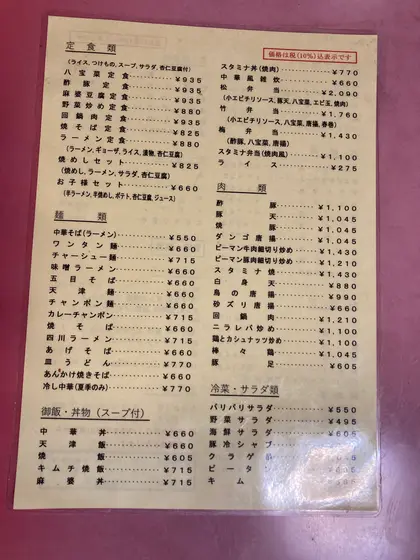 定食類
(ライス、つけもの、スープ、サラダ、杏仁豆腐付)
八宝菜定食 ¥935
酢豚定食 ¥935
麻婆豆腐定食 ¥935
野菜炒め定食 ¥880
回鍋肉定食 ¥935
焼そば定食 ¥825
ラーメン定食 ¥880
(ラーメン、ギョーザ、ライス、漬物、杏仁豆腐)
焼めしセット ¥825
(焼めし、ラーメン、サラダ、杏仁豆腐)
お子様セット ¥660
(半ラーメン、半焼めし、ポテト、杏仁豆腐、ジュース)
麺類
中華そば(ラーメン) ¥550
ワンタン麺 ¥660
チャーシュー麺 ¥715
味噌ラーメン ¥660
五目そば ¥660
天津麺 ¥660
チャンポン麺 ¥660
カレーチャンポン ¥715
焼そば ¥660
四川ラーメン ¥715
あげそば ¥660
皿うどん ¥770
あんかけ焼きそば ¥660
冷し中華(夏季のみ) ¥770
御飯・丼物(スープ付)
中華丼 ¥660
天津飯 ¥660
焼飯 ¥605
キムチ焼飯 ¥715
麻婆丼 ¥715
価格は税(10%)込表示です
スタミナ丼(焼肉) ¥770
中華風雑炊 ¥660
松弁当 ¥2,090
(小エビチリソース、豚天、八宝菜、エビ玉、焼肉)
竹弁当 ¥1,760
(小エビチリソース、八宝菜、唐揚、春巻)
梅弁当 ¥1,430
(酢豚、八宝菜、唐揚)
スタミナ弁当(焼肉風) ¥1,100
ライス ¥275
肉類
酢豚 ¥1,100
天豚 ¥1,045
焼豚 ¥1,045
ダンゴ唐揚 ¥1,100
ピーマン牛肉細切り炒め ¥1,430
ピーマン豚肉細切り炒め ¥1,210
スタミナ焼 ¥1,210
白身天 ¥880
鳥の唐揚 ¥990
砂ズリ唐揚 ¥660
回鍋肉 ¥1,210
ニラレバ炒め ¥1,100
鶏とカシュナッツ炒め ¥1,100
棒々鶏 ¥1,045
豚足 ¥605
冷菜・サラダ類
パリパリサラダ ¥550
野菜サラダ ¥495
海鮮サラダ ¥605
豚冷シャブ
クラゲ酢
ピータン
キム